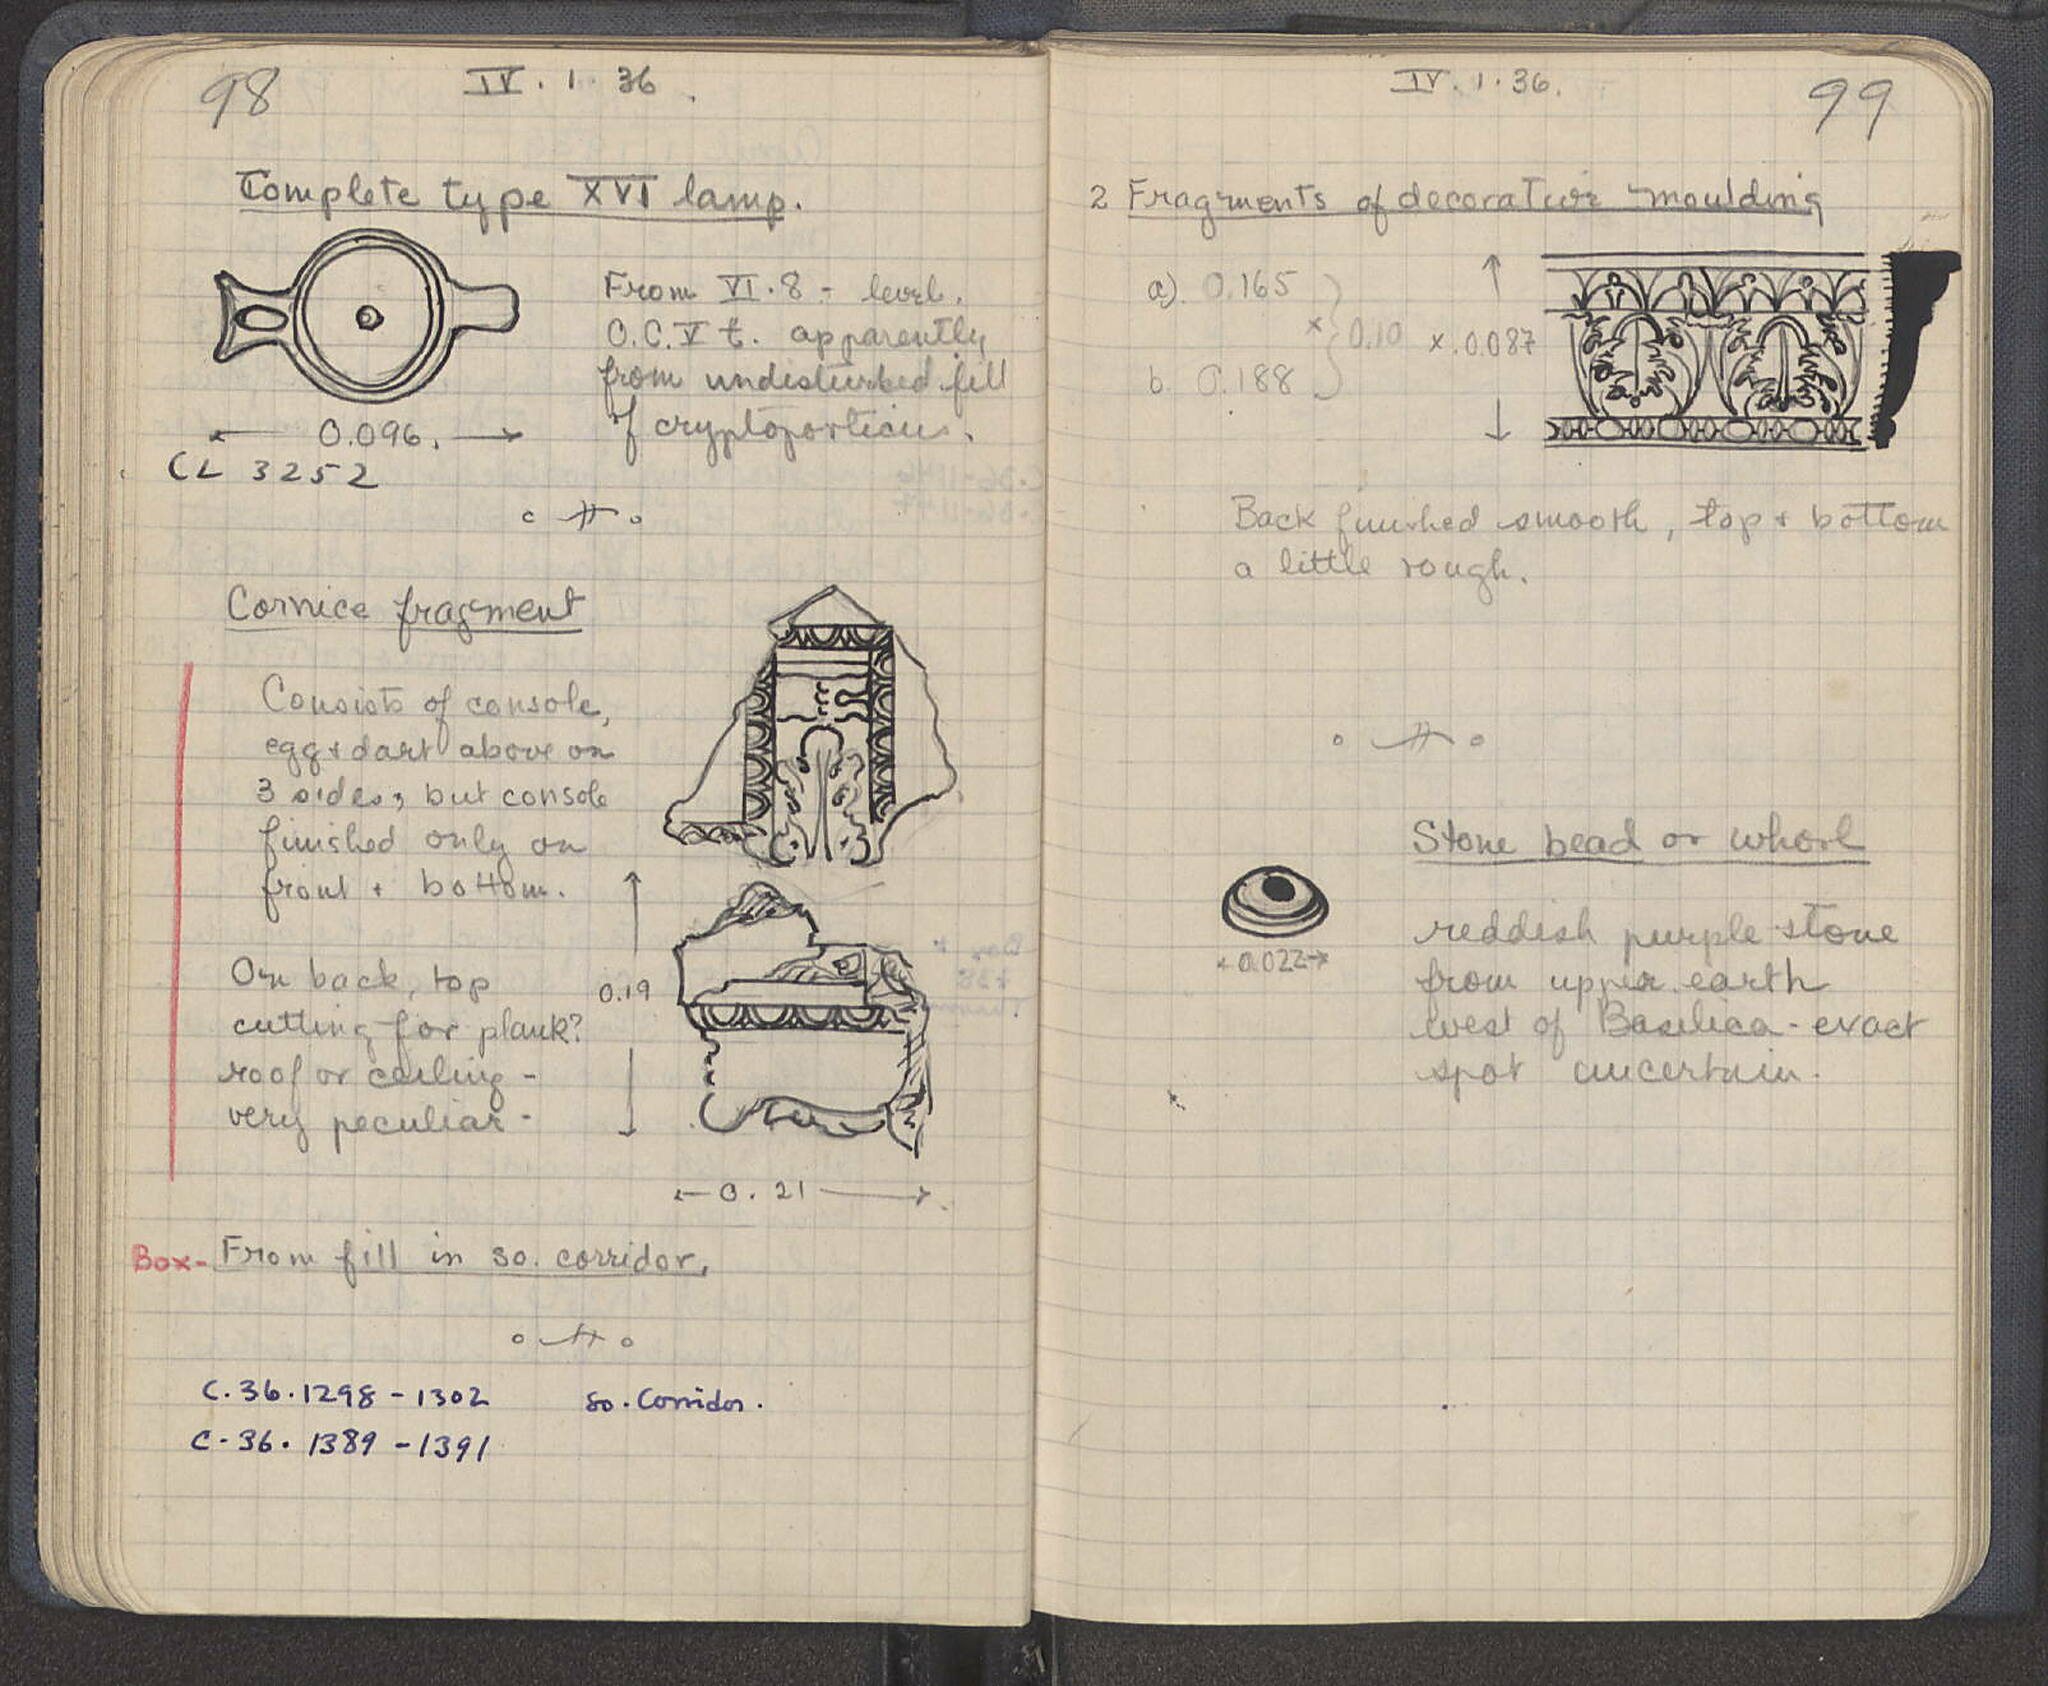 98
IV. 1. 36.
Complete type XVI lamp.
From VI.8 - level.
O.C.V t. apparently
from undisturbed fill
of cryptoporticus.
0.096.
CL 3252
Cornice fragment
Consists of console,
egg & dart above on
3 sides, but console
finished only on
front + bottom.
On back, top
cutting for plank?
roof or ceiling -
very peculiar -
0.19
0.21
Box - From fill in so. corridor.
C.36.1298 - 1302 so. Corridor.
C-36. 1389 - 1391
IV. 1. 36.
99
2 Fragments of decorative moulding
a). 0.165
x } 0.10 x .0.087
b. 0.188
Back finished smooth, top + bottom
a little rough.
Stone bead or whorl
0.022
reddish purple stone
from upper earth
west of Basilica - exact
spot uncertain.